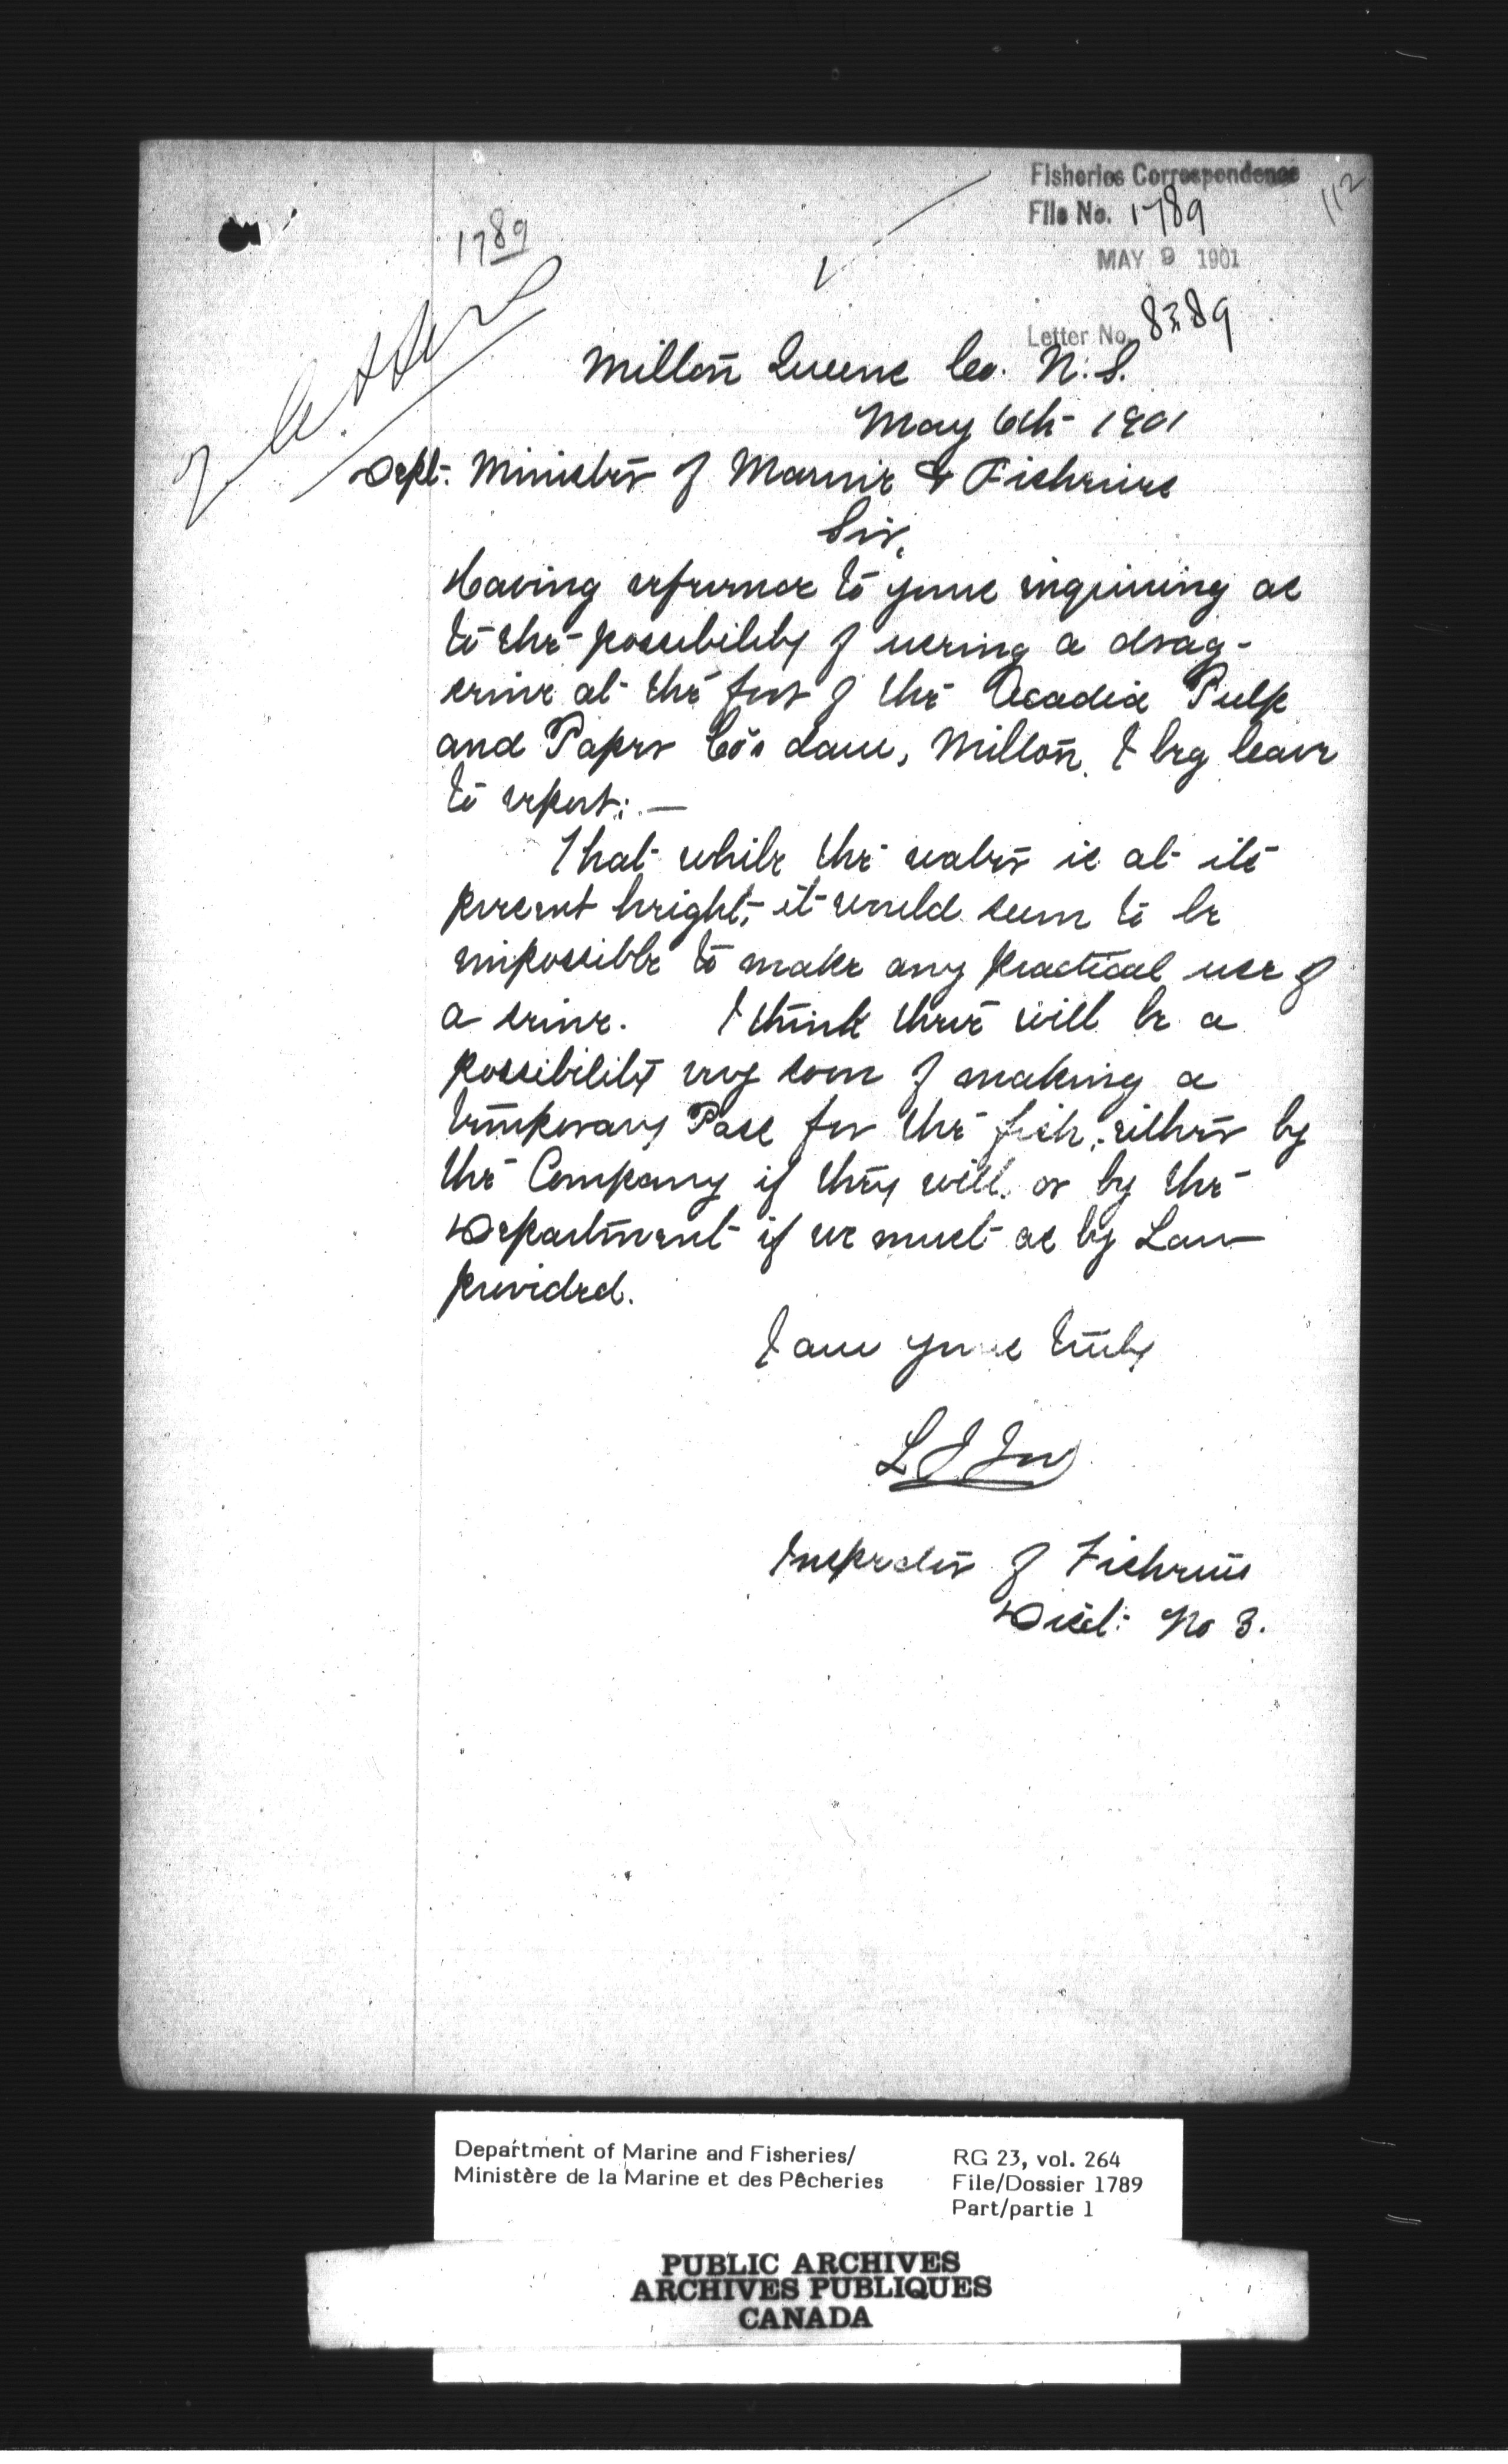 Fisheries Correspondence
File No. 1789
112
1789
MAY 9 1901
2 letters
Letter No. 8389
Milton Queens Co. N.S.
May 6th 1901
Dept. Minister of Marine & Fisheries
Sir,
Having reference to yours inquiring as
to the possibility of using a drag-
seine at the foot of the Acadia Pulp
and Paper Co's dam, Milton, I beg leave
to report: —
That while the water is at its
present height, it would seem to be
impossible to make any practical use of
a seine. I think there will be a
possibility very soon of making a
temporary Pass for the fish, either by
the Company if they will, or by the
Department if we must as by Law
provided.
I am yours truly
L J
Inspector of Fisheries
Dist: No 3.
Department of Marine and Fisheries/
Ministère de la Marine et des Pêcheries
RG 23, vol. 264
File/Dossier 1789
Part/partie 1
PUBLIC ARCHIVES
ARCHIVES PUBLIQUES
CANADA